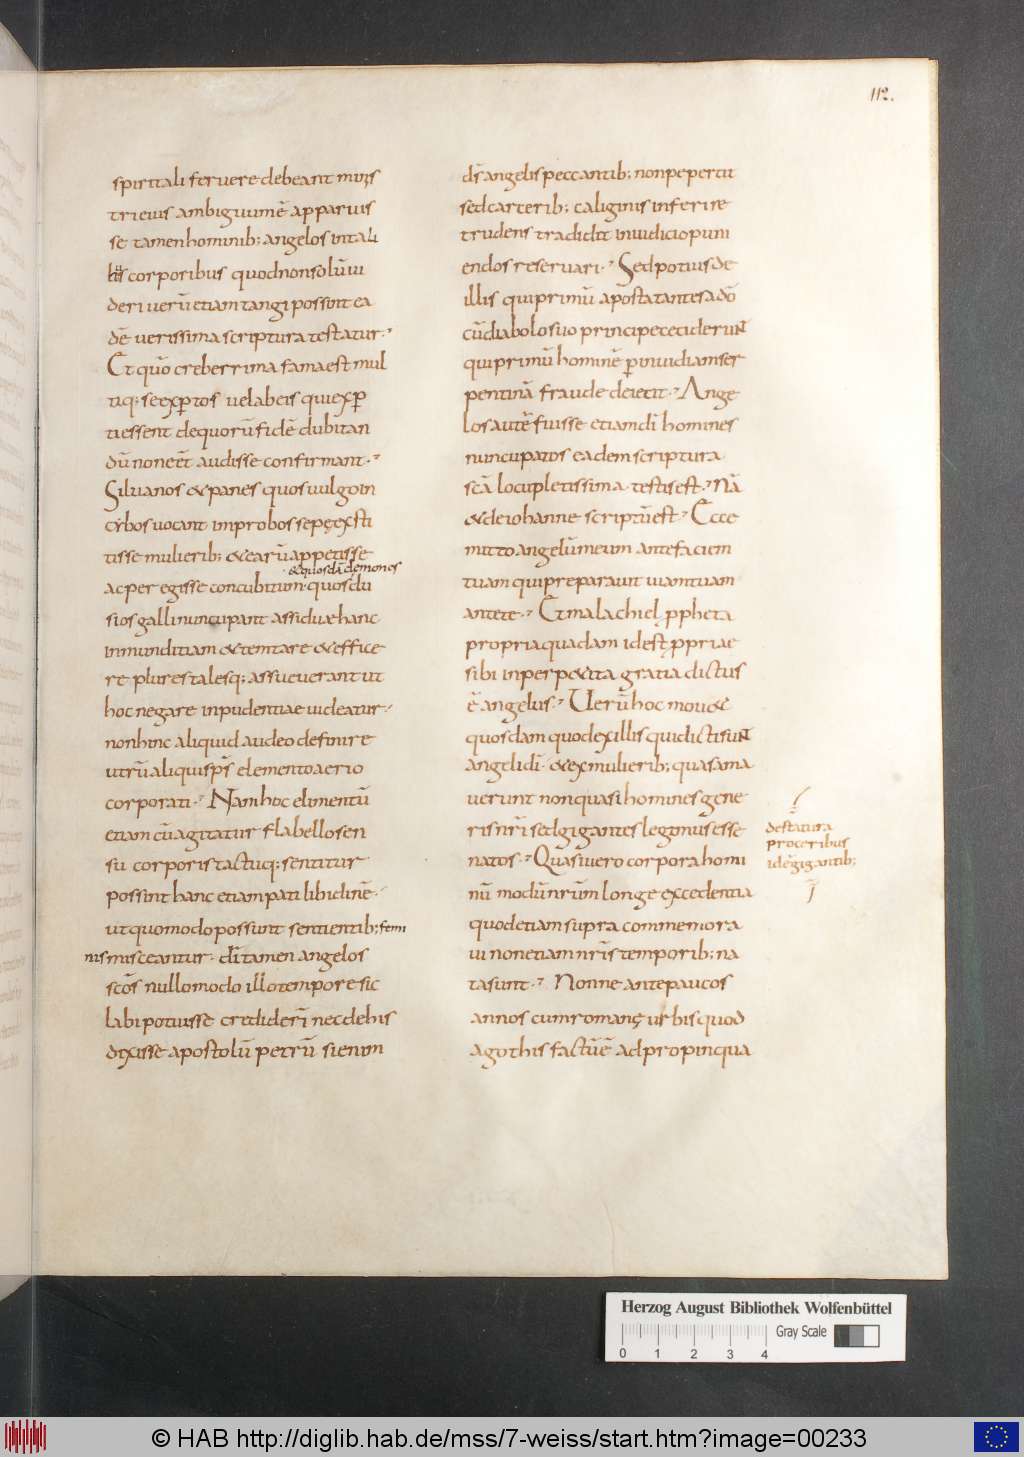 112.
spiritali feruere debeant minis
trieius ambiguumē apparuis
se tamen hominib; angelos intali
bus corporibus quodnonsolū ui
deri uerū etiam tangi possint ea
dē uerissima scriptura testatur.
Et quō creberrima fama est mul
tiq; se exꝑtos uelabeis quiexꝑ
tiessent dequorū fidē dubitan
dū non eēt audisse confirmant.
Siluanos &panes quos uulgo in
cybos uocant improbos sepę exsti
tisse mulierib; &earū appetisse
&quosdā demones
acper egisse concubitum. quos du
sios galli nuncupant assiduæ hanc
inmunditiam &temtare &effice
re plures talesq; asseuerant ut
hoc negare inpudentiae uideatur.
non hinc aliquid audeo definire
utrū aliqui sp̄s elemento aerio
corporati. Nam hoc elimentū
etiam cū agitatur flabello sen
su corporis tactuq; sentitur
possint hanc etiam pati libidinē.
ut quomodo possunt sentientib; femi
nis misceantur. dī tamen angelos
scōs nullo modo illo tempore sic
labi potuisse crediderī nec de his
dixisse apostolū petrū si enim
dš angelis peccantib; non pepercit
sed carcerib; caliginis inferi re
trudens tradidit in iudicio puni
endos reseruari. Sed potius de
illis qui primū apostatantes a dō
cū diabolo suo principe ceciderunt
qui primū hominē ꝑ inuidiam ser
pentinā fraude deiecit. Ange
los autē fuisse etiam dī homines
nuncupatos eadem scriptura
scā locupletissima testis est. Nā
&de iohanne scriptū est. Ecce
mitto angelū meum ante faciem
tuam qui preparauit uiam tuam
ante te. Et malachiel ꝓpheta
propria quadam id est ꝓpriae
sibi inper&ita gratia dictus
ē angelus. Uerū hoc mou&
quosdam quod ex illis qui dicti sunt
angeli dī. &ex mulierib; quas ama
uerunt non quasi homines gene
ris nr̄i sed gigantes legimus esse
natos. Quasi uero corpora homi
nū modū nrūm longe excedentia
quod etiam supra commemora
ui non etiam nr̄is temporib; na
ta sunt. Nonne ante paucos
annos cum romanę urbis quod
a gothis factū ē adpropinqua
de statura
proceribus
id ē gigantib;
Herzog August Bibliothek Wolfenbüttel
Gray Scale
0 1 2 3 4
© HAB http://diglib.hab.de/mss/7-weiss/start.htm?image=00233